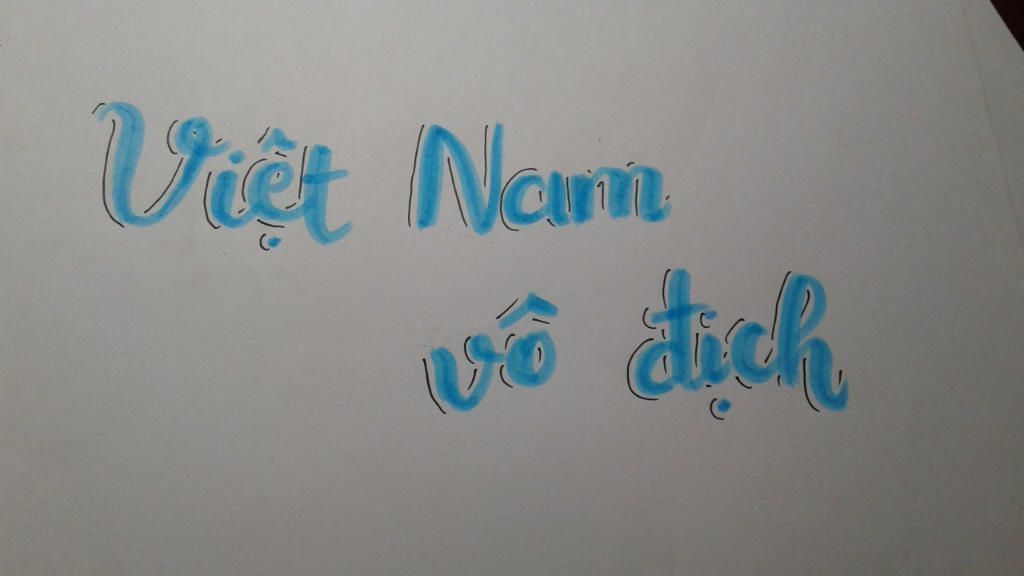 Việt Nam
vô địch